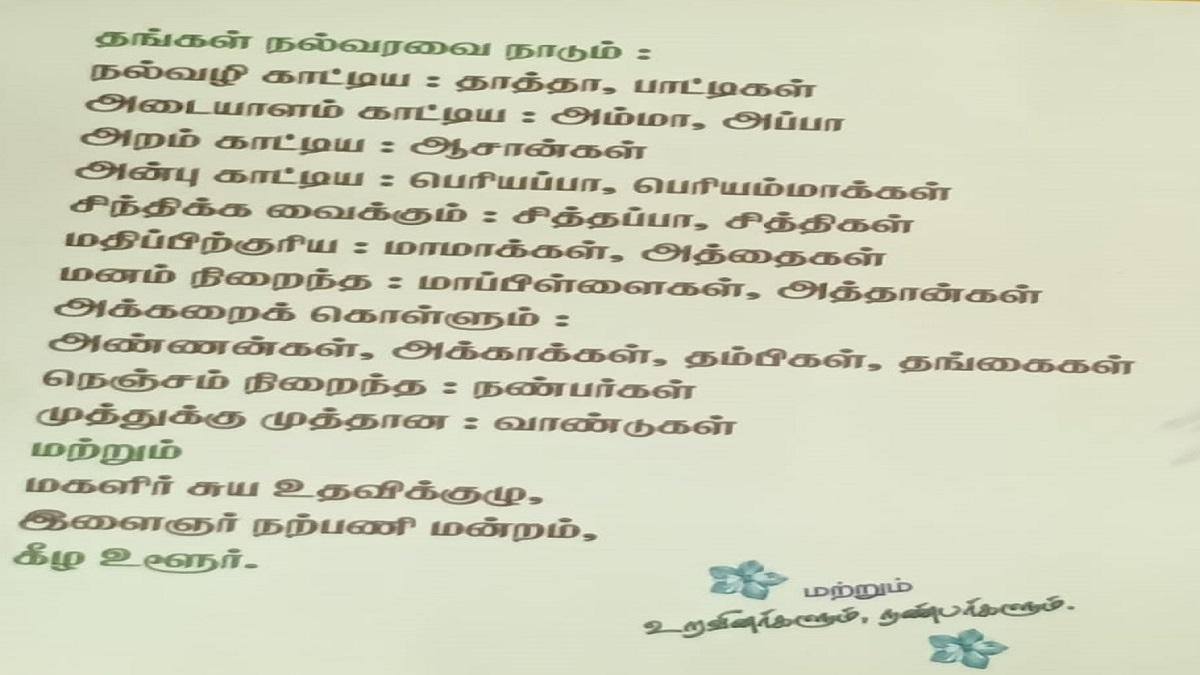 தங்கள் நல்வரவை நாடும் :
நல்வழி காட்டிய : தாத்தா, பாட்டிகள்
அடையாளம் காட்டிய : அம்மா, அப்பா
அறம் காட்டிய : ஆசான்கள்
அன்பு காட்டிய : பெரியப்பா, பெரியம்மாக்கள்
சிந்திக்க வைக்கும் : சித்தப்பா, சித்திகள்
மதிப்பிற்குரிய : மாமாக்கள், அத்தைகள்
மனம் நிறைந்த : மாப்பிள்ளைகள், அத்தான்கள்
அக்கறைக் கொள்ளும் :
அண்ணன்கள், அக்காக்கள், தம்பிகள், தங்கைகள்
நெஞ்சம் நிறைந்த : நண்பர்கள்
முத்துக்கு முத்தான : வாண்டுகள்
மற்றும்
மகளிர் சுய உதவிக்குழு,
இளைஞர் நற்பணி மன்றம்,
கீழ உளூர்.
மற்றும்
உறவினர்களும், நண்பர்களும்.